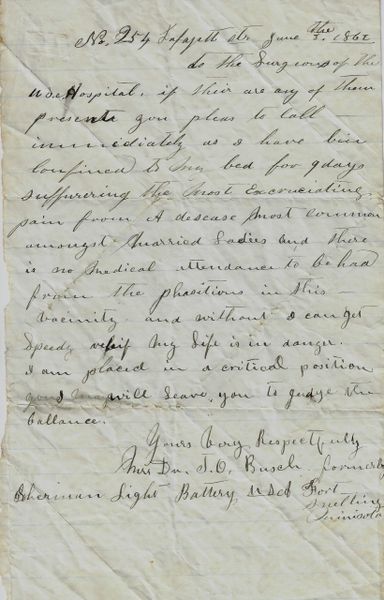 No. 254 Lafayett str. June the 3. 1862
to the Surgeons of the
Hospital, if their are any of them
present you pleas to call
immediately as I have bin
confined to my bed for 9 days
suffurering the most Excruciating
pain from A desease most common
amongst married Ladies and there
is no Medical attendance to be had
from the phasitions in this
vacinity and without I can get
speedy relief My Life is in danger.
I am placed in a critical position
will Leave you to judge the
ballance.
Yours Very Respectfully
Mrs Dr. J. O. Busch. formerly
Sherman Light Battery, Fort
Snelling
Minisota